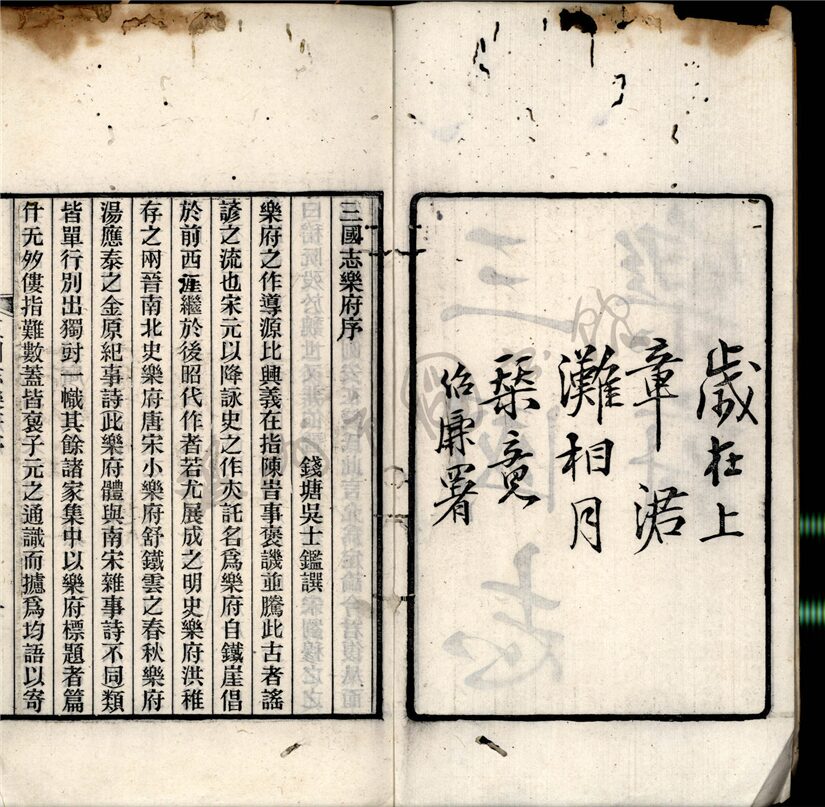 歲在上
章涒
灘相月
栞竟
伯廉署
三國志樂府序
錢塘吳士鑑譔
樂府之作導源比興義在指陳旹事褒譏並騰此古者謠
諺之流也宋元以降詠史之作亦託名爲樂府自鐵崖倡
於前西涯繼於後昭代作者若尤展成之明史樂府洪稚
存之兩晉南北史樂府唐宋小樂府舒鐵雲之春秋樂府
湯應泰之金原紀事詩此樂府體與南宋雜事詩不同類
皆單行別出獨尌一幟其餘諸家集中以樂府標題者篇
什尤夥僂指難數蓋皆褒子元之通識而攄爲均語以寄